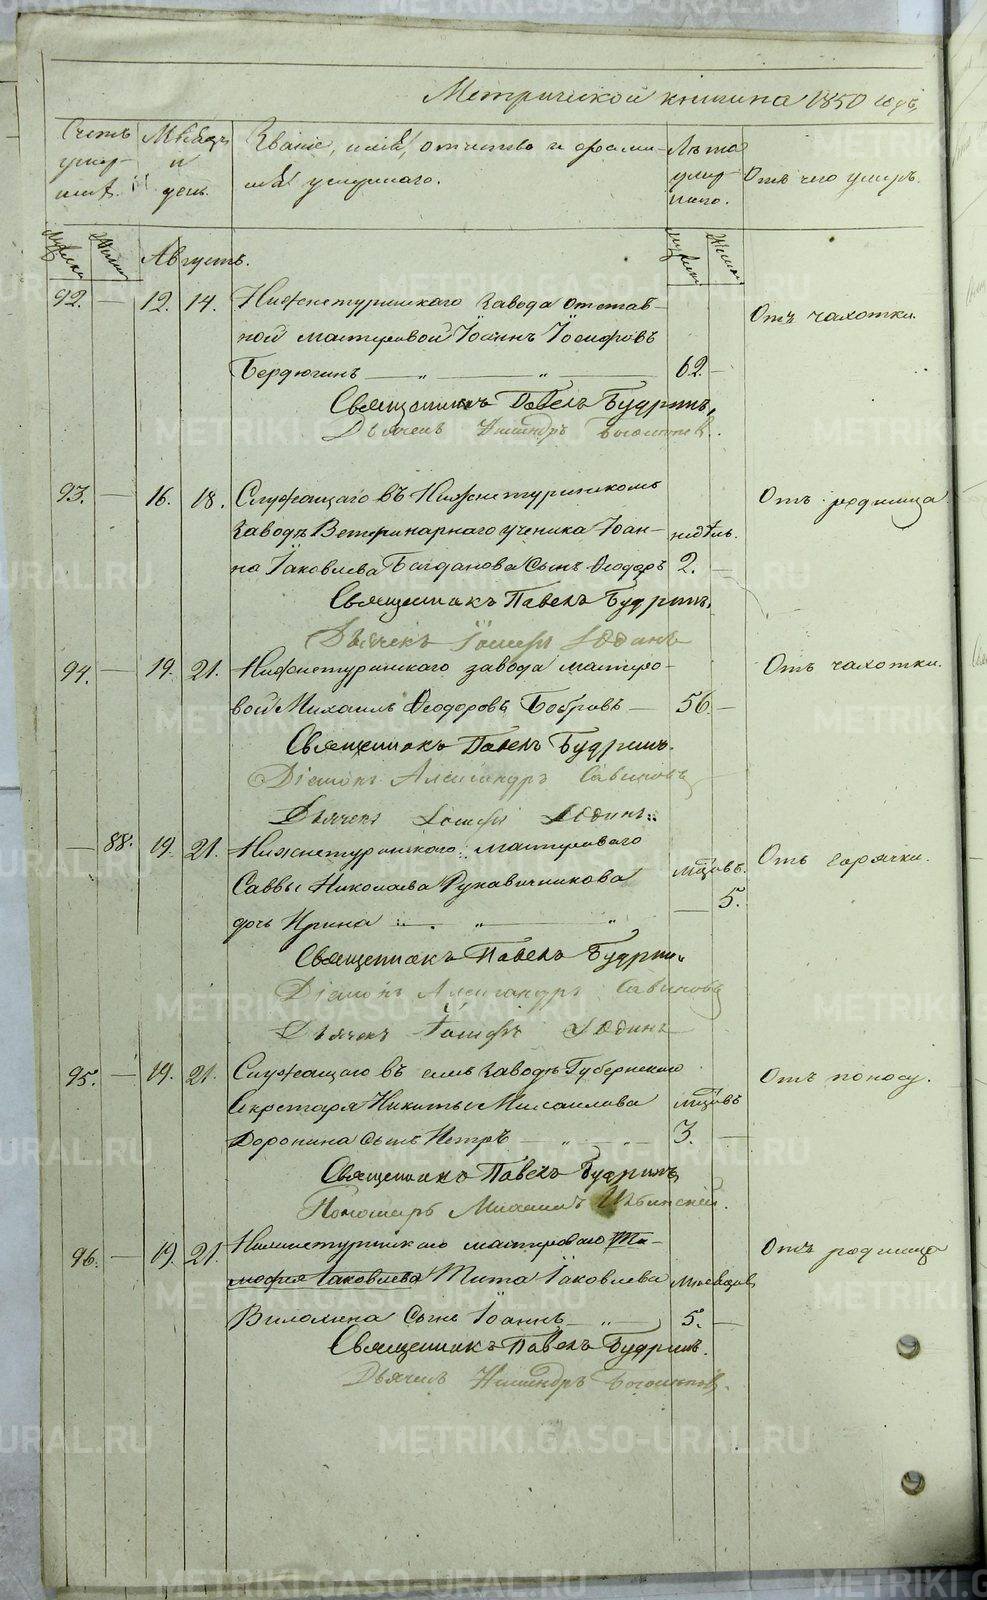 Метрической книги на 1850 годъ
Счетъ умер- шихъ.
Мѣсяцъ и день.
Званіе, имя, отчество и фами-
лія умершаго.
Лѣта умер- шаго.
Отъ чего умеръ.
Мужеска Женска
Августъ.
92. — 12. 14. Нижнетуринскаго завода отстав-
ной мастеровой Іоаннъ Іосифовъ
Бердюгинъ — „ — „ — 62. —
Отъ чахотки.
Священникъ Павелъ Будринъ.
Дьячекъ
93. — 16. 18. Служащаго въ Нижнетуринскомъ
заводѣ Ветеринарнаго ученика Іоан- недѣль.
на Іаковлева Богданова сынъ Ѳеодоръ 2. —
Отъ родимца
Священникъ Павелъ Будринъ.
Дьячекъ Іосифъ
94. — 19. 21. Нижнетуринскаго завода мастеро-
вой Михаилъ Ѳеодоровъ Бобровъ — 56. —
Отъ чахотки.
Священникъ Павелъ Будринъ.
Діаконъ Александръ Савиновъ
Дьячекъ Іосифъ
— 88. 19. 21. Нижнетуринскаго мастероваго
Саввы Николаева Рукавичникова мѣсяцовъ.
дочь Ирина — „ — „ — 5.
Отъ горячки.
Священникъ Павелъ Будринъ
Діаконъ Александръ Савиновъ
Дьячекъ Іосифъ
95. — 19. 21. Служащаго въ семъ заводѣ Губернскаго
Секретаря Никиты Михаилова мѣсяцовъ
Доронина сынъ Петръ — „ — „ — 3. —
Отъ поносу.
Священникъ Павелъ Будринъ
Пономарь Михаилъ
96. — 19. 21. Нижнетуринскаго мастероваго Ти-
мофея Іаковлева Тита Іаковлева Мѣсяцов
Вилохина сынъ Іоаннъ — „ — 5. —
Отъ родимца
Священникъ Павелъ Будринъ.
Дьячекъ
METRIKI.GASO-URAL.RU